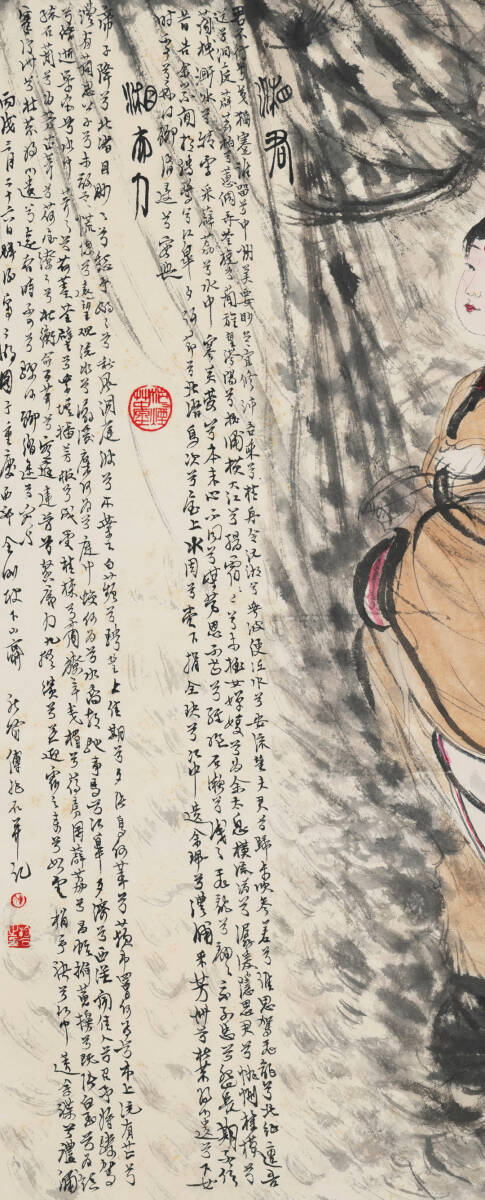 湘君
君不行兮夷猶蹇誰留兮中洲美要眇兮宜修沛吾乘兮桂舟令沅湘兮無波使江水兮安流望夫君兮歸來吹參差兮誰思駕飛龍兮北征邅吾
道兮洞庭薜荔柏兮蕙綢蓀橈兮蘭旌望涔陽兮極浦橫大江兮揚靈揚靈兮未極女嬋媛兮為余太息橫流涕兮潺湲隱思君兮陫惻桂櫂兮
蘭枻斲冰兮積雪采薜荔兮水中搴芙蓉兮木末心不同兮媒勞恩不甚兮輕絕石瀨兮淺淺飛龍兮翩翩交不忠兮怨長期不信
兮告余以不閒朝騁騖兮江皋夕弭節兮北渚鳥次兮屋上水周兮堂下捐余玦兮江中遺余珮兮澧浦采芳洲兮杜若將以遺兮下女
時不可兮再得聊逍遙兮容與
湘夫人
帝子降兮北渚目眇眇兮愁予嫋嫋兮秋風洞庭波兮木葉下白薠兮騁望與佳期兮夕張鳥何萃兮蘋中罾何為兮木上沅有芷兮
澧有蘭思公子兮未敢言慌惚兮遠望觀流水兮潺湲麋何為兮庭中蛟何為兮水裔朝馳余馬兮江皋夕濟兮西澨聞佳人兮召予將騰駕
兮偕逝築室兮水中葺之兮荷蓋荃壁兮紫壇播芳椒兮成堂桂棟兮蘭橑辛夷楣兮葯房罔薜荔兮為帷擗蕙櫋兮既張白玉兮為鎮
疏石蘭兮為芳芷葺兮荷屋繚之兮杜衡合百草兮實庭建芳馨兮廡門九嶷繽兮並迎靈之來兮如雲捐余袂兮江中遺余褋兮澧浦
搴汀洲兮杜若將以遺兮遠者時不可兮驟得聊逍遙兮容與
丙戌二月二十六日圖于重慶西郊金剛坡下山齋 新喻傅抱石并記